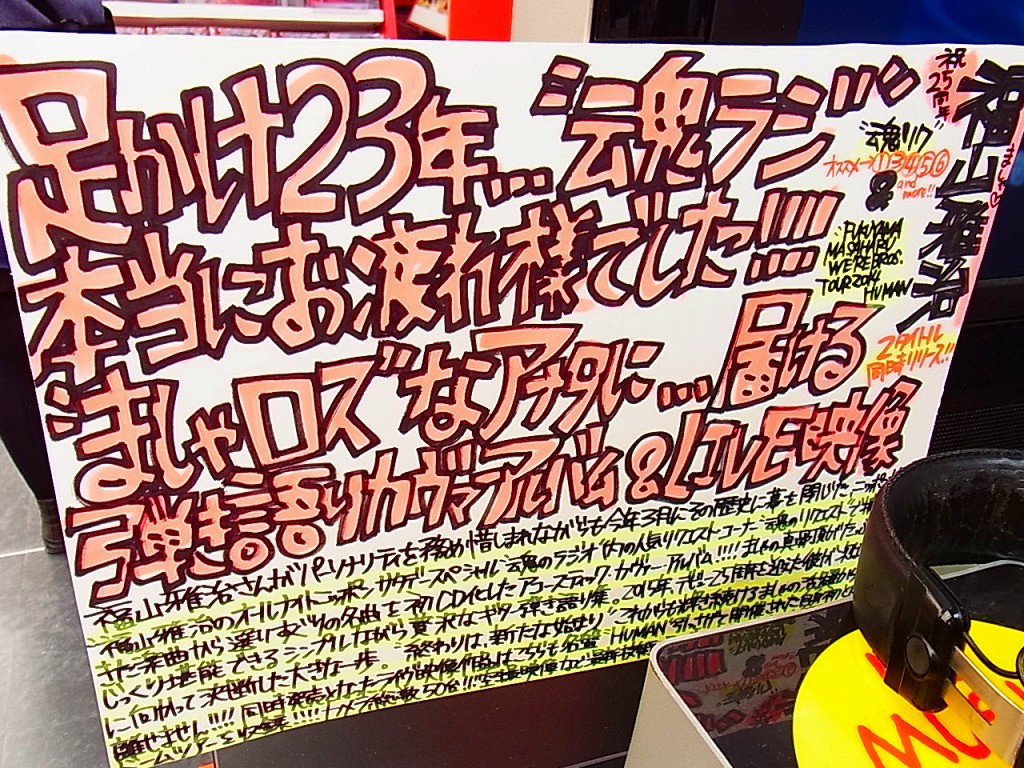 足かけ23年... "魂ラジ"
本当にお疲れ様でしたっ!!!!
"ましゃロズ"なアナタに...届ける
弾き語りカヴァーアルバム&LIVE映像
祝
25周年
福山雅治
"魂リク"
オススメ→①③④⑤⑥
and
more!!
&
"FUKUYAMA
MASAHARU
WE'RE BROS.
TOUR 2014
HUMAN"
2タイトル
同時リリース!!
福山雅治さんがパーソナリティを務め惜しまれながらも今年3月にその歴史に幕を閉じた
福山雅治のオールナイトニッポンサタデースペシャル・魂のラジオ"内の人気リクエストコーナー"魂のリクエスト"で
きた楽曲から選りすぐりの名曲を初CD化したアコースティック・カヴァーアルバム!!!!ましゃの真骨頂
じっくり堪能できるシンプルながら贅沢なギター弾き語り集。2015年、デビュー25周年を迎えた彼が
に向かって決断した大きな一歩。終わりは、新たな始まり。これからも
離せません!!!!同時発売となったライヴ映像作品はこちらも名盤"HUMAN"